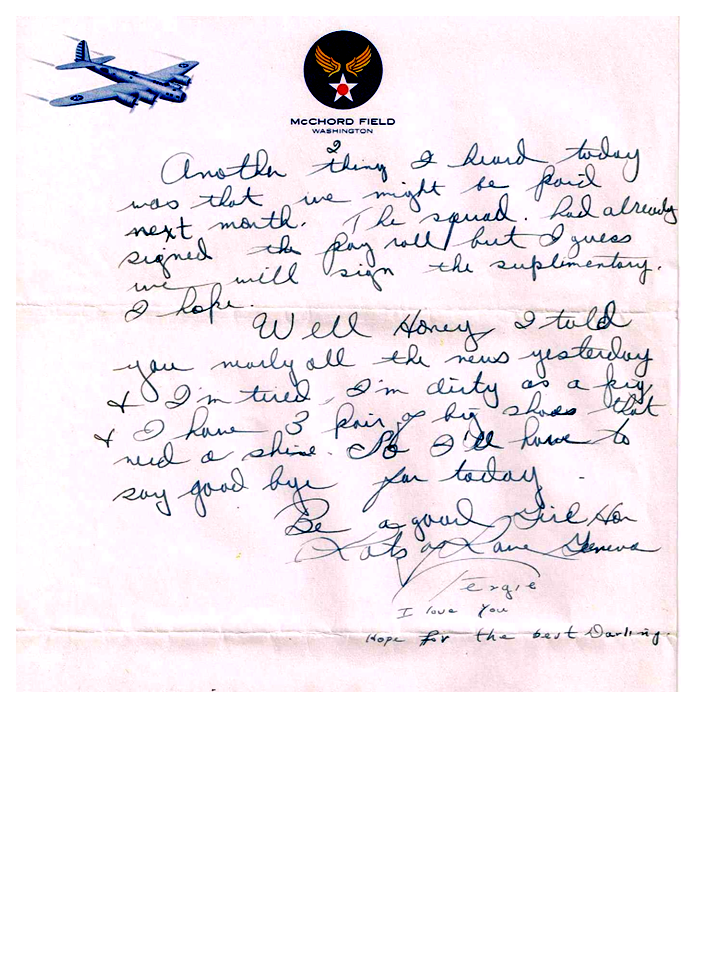 McCHORD FIELD
WASHINGTON
2
Another thing I heard today
was that we might be paid
next month. The squad. had already
signed the pay roll but I guess
we will sign the suplimentary.
I hope.
Well Honey, I told
you nearly all the news yesterday
& I'm tired, I'm dirty as a pig,
& I have 3 pair of big shoes that
need a shine. So I'll have to
say good bye for today.
Be a good Girl Hon
Lots of Love Geneva
Fergie
I love You
Hope for the best Darling.